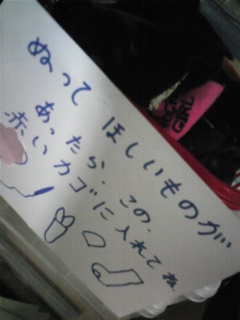 ぬって ほしいものが
あったら、この、
赤いカゴに入れてね